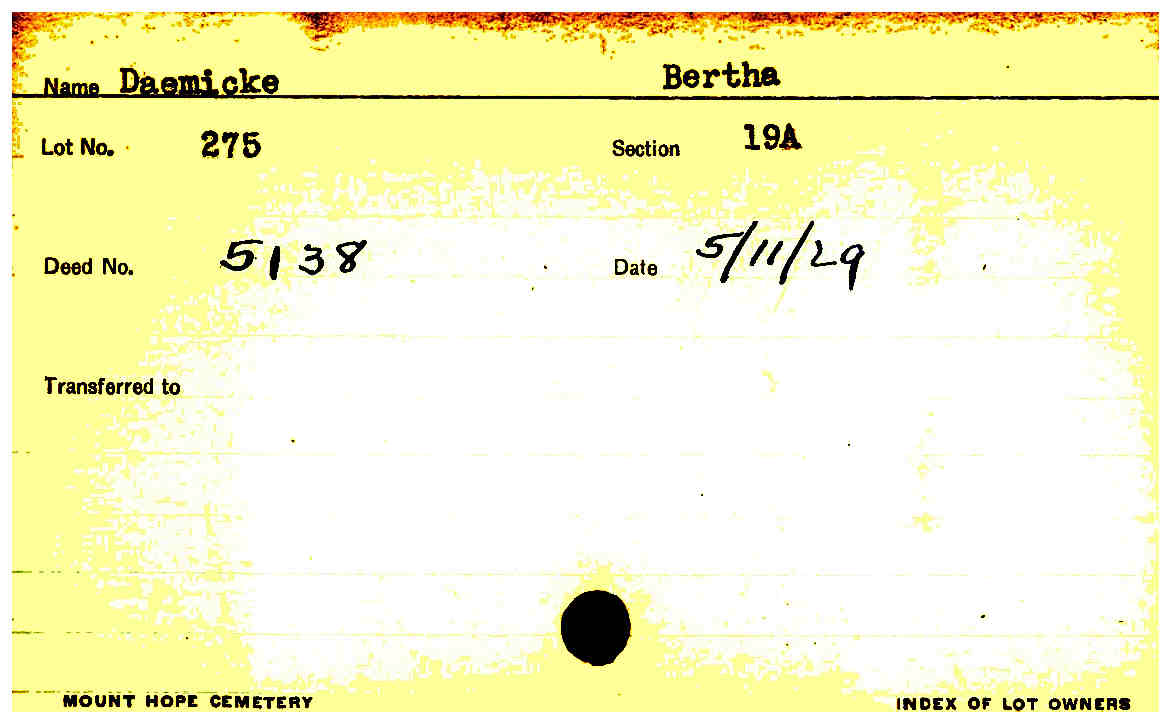 Name Daemicke Bertha
Lot No. 275 Section 19A
Deed No. 5138 Date 5/11/29
Transferred to
MOUNT HOPE CEMETERY INDEX OF LOT OWNERS